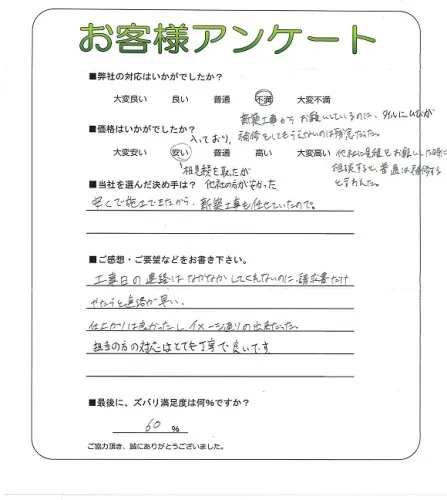 お客様アンケート
■弊社の対応はいかがでしたか?
大変良い 良い 普通 不満 大変不満
新築工事からお願いしているのに、タイルにひびが
入っており、補修をしてもらえないのは残念だった。
■価格はいかがでしたか?
大変安い 安い 普通 高い 大変高い
他社に見積をお願いした時に
相談すると、普通は補修する
と言われた。
相見積を取ったが
他社の方が安かった
■当社を選んだ決め手は?
安くで施工できたから、新築工事も任せていたので。
■ご感想・ご要望などをお書き下さい。
工事日の連絡はなかなかしてくれないのに、請求書だけ
やたらと連絡が早い。
仕上がりは良かったし、イメージ通りの出来だった。
担当の方の対応はとても丁寧で良いです。
■最後に、ズバリ満足度は何%ですか?
60 %
ご協力頂き、誠にありがとうございました。